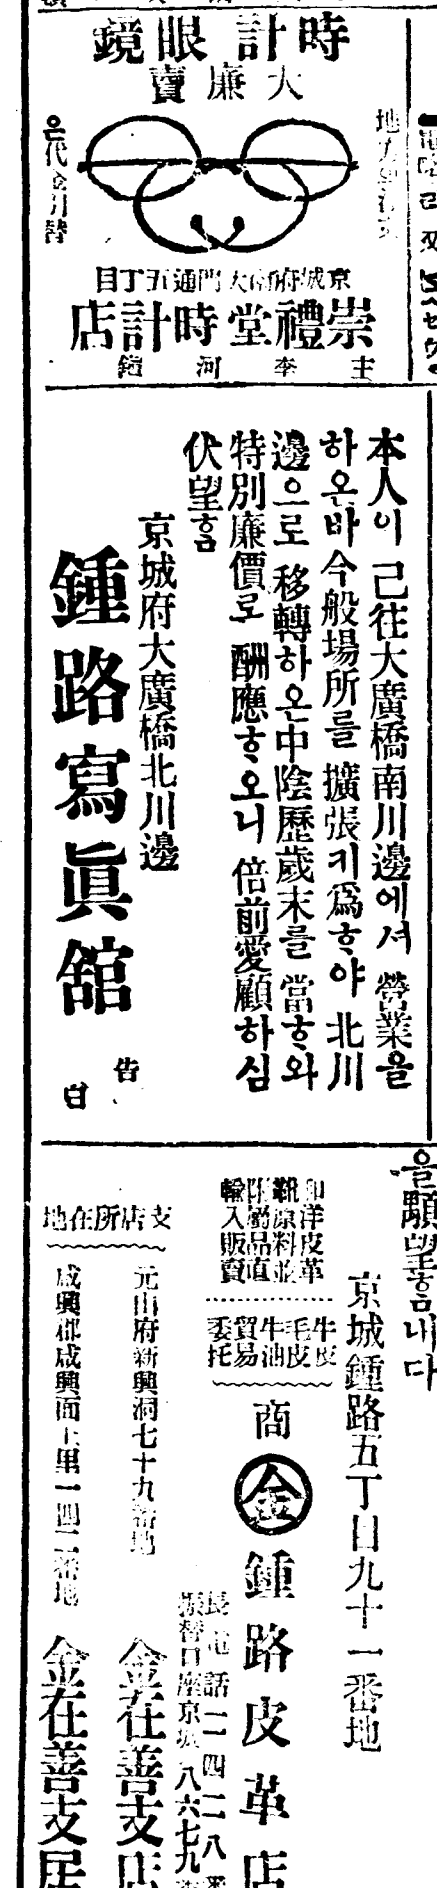 時計眼鏡
大廉賣
은代金引替
京城府南大門通五丁目
崇禮堂時計店
主 李河鎰
本人이 己往大廣橋南川邊에셔 營業을
하온바 今般場所를 擴張키爲ᄒᆞ야 北川
邊으로 移轉하온中陰歷歲末를 當ᄒᆞ와
特別廉價로 酬應ᄒᆞ오니 倍前愛顧하심
伏望홈
京城府大廣橋北川邊
鍾路寫眞舘
告白
을願望홈내다
京城鍾路五丁目九十一番地
和洋皮革
靴原料並
附屬品直
輸入販賣
牛皮
毛皮
牛油
貿易
委托
商
金
鍾路皮革店
長電話二四二八番
振替口座京城八六七九番
支店所在地
元山府新興洞七十九番地
金在善支店
咸興郡咸興面上里一四二番地
金在善支店